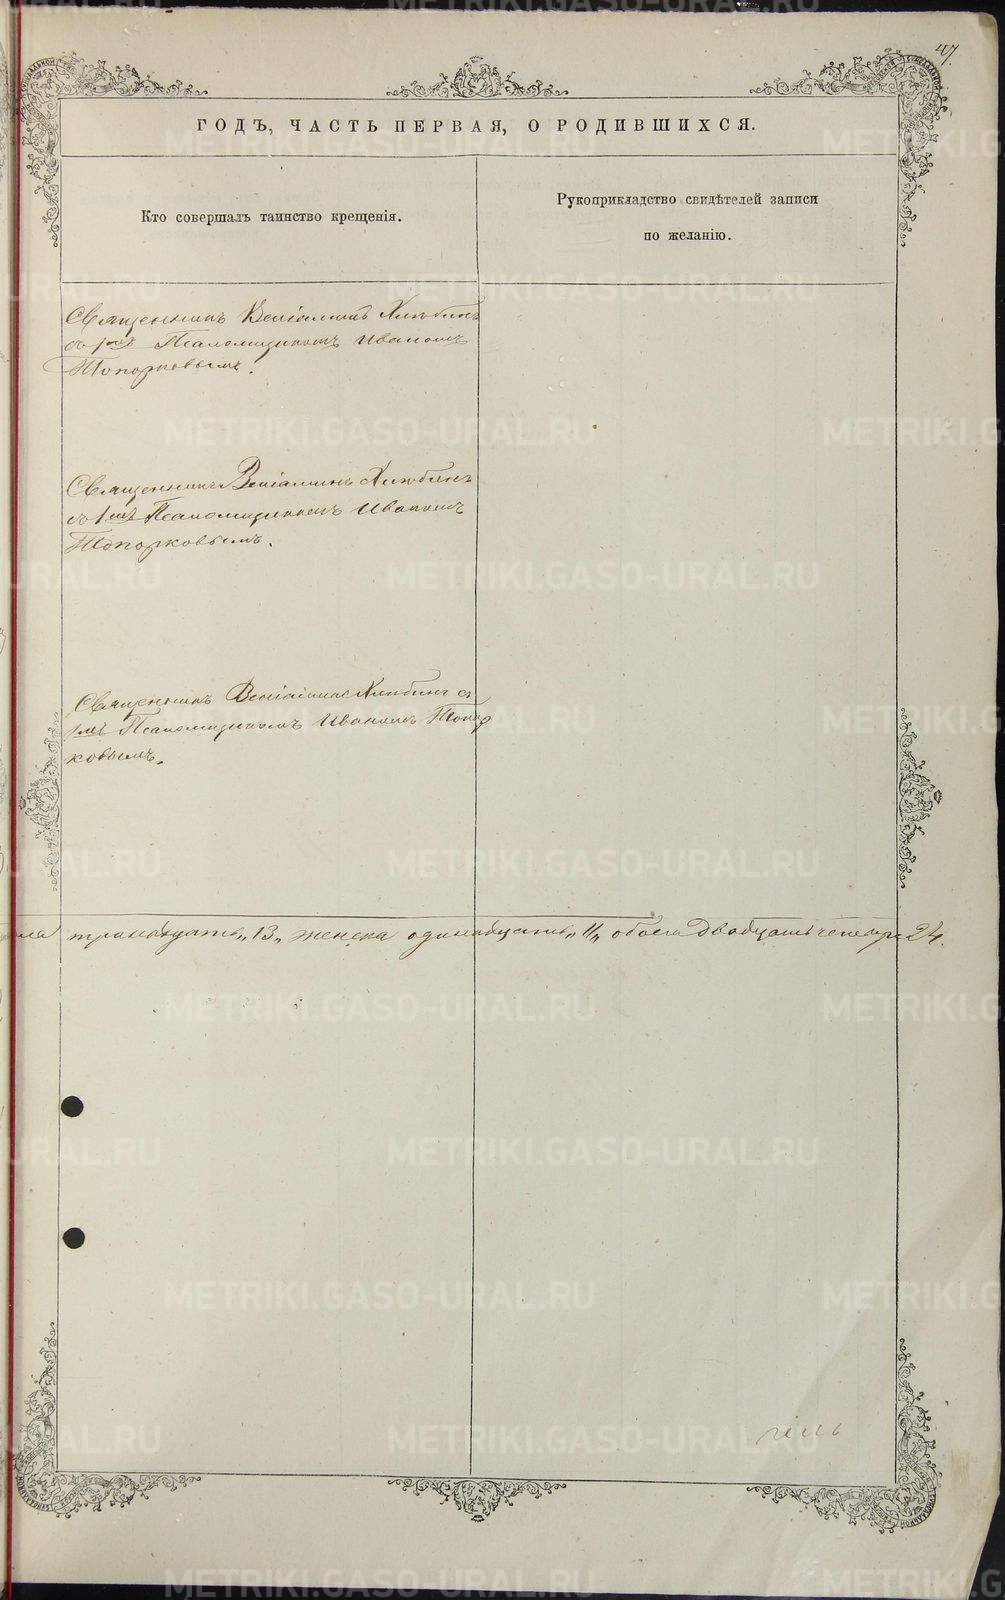 47.
ГОДЪ, ЧАСТЬ ПЕРВАЯ, О РОДИВШИХСЯ.
Кто совершалъ таинство крещенія.
Рукоприкладство свидѣтелей записи
по желанію.
Священникъ Веніаминъ Хлѣбинъ
съ 1мъ Псаломщикомъ Иваномъ
Топорковымъ.
Священникъ Веніаминъ Хлѣбинъ
съ 1мъ Псаломщикомъ Иваномъ
Топорковымъ.
Священникъ Веніаминъ Хлѣбинъ съ
1мъ Псаломщикомъ Иваномъ Топор
ковымъ.
тринадцать „13„ женска одинадцать „11„ обоего двадцать четыре 24.
METRIKI.GASO-URAL.RU